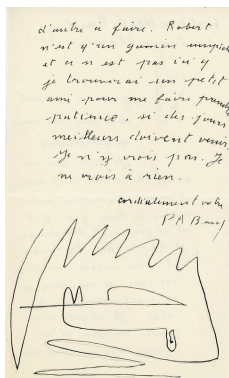 d'autre à faire. Robert
n'est qu'un gamin
et ce n'est pas ici q
je trouverai un petit
ami pour me faire prendre
patience, si des jours
meilleurs doivent venir.
Je n'y crois pas. Je
ne crois à rien.
cordialement votre
P A B